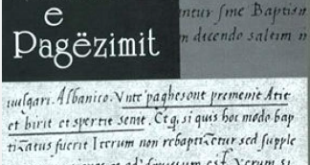 e
Pagëzimit
ntur sine Baptism
n decendo saltem in
uulgari. Albanico. Vnte paghesont premenit Atit
et birit et spertit senit. Et q. si quis hoc modo bap
tizatus fuerit Iterum non rebaptizetur sed supple